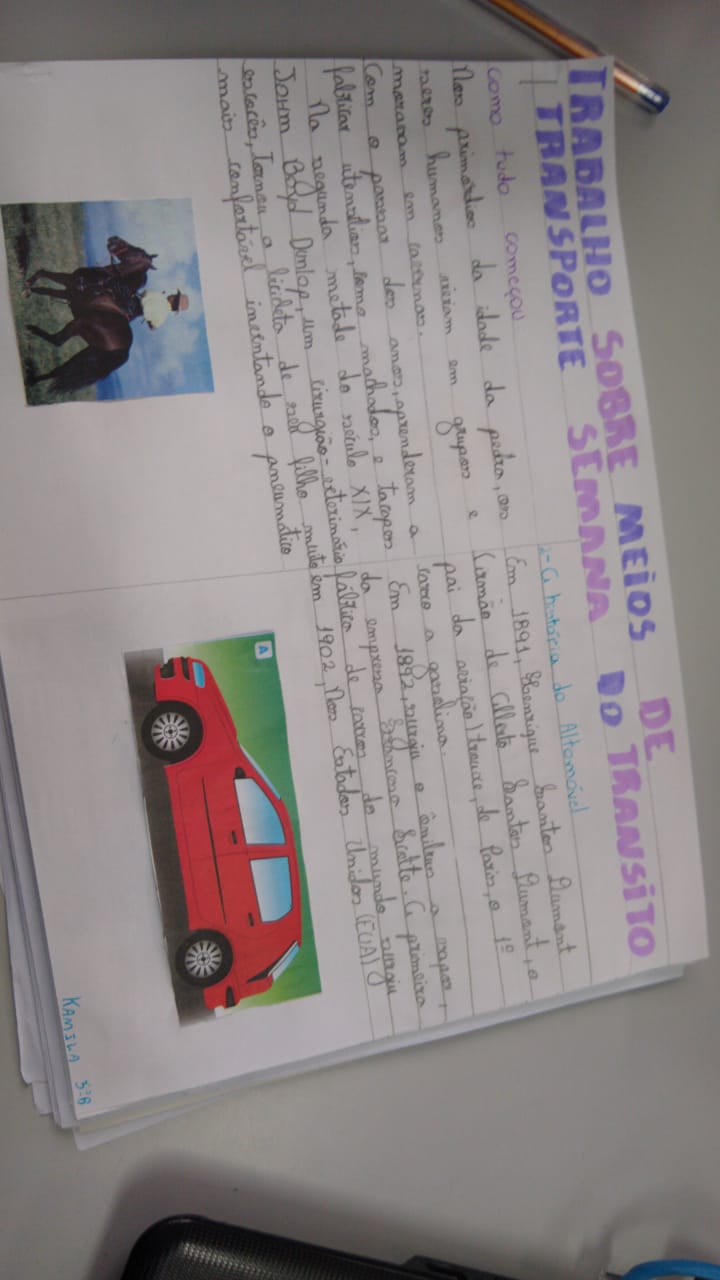 TRABALHO SOBRE MEIOS DE
TRANSPORTE SEMANA DO TRANSITO
1
como tudo começou
Nos primórdios da idade da pedra, os
seres humanos viviam em grupos e
moravam em cavernas.
Com o passar dos anos, aprenderam a
fabricar utensílios, como machados, e tacapes
Na segunda metade do século XIX,
John Boyd Dunlop, um cirurgião-veterinário
escocês, Tornou a bicicleta de seu filho muito
mais confortável inventando o pneumático
2-A história do Altomóvel
Em 1891, Henrique Santos Dumont
(irmão de Alberto Santos Dumont, o
pai da aviação) trouxe, de Paris, o 1º
carro a gasolina.
Em 1892, surgiu o ônibus a vapor,
da empresa Francesa Scotte. A primeira
fábrica de carros do mundo surgiu
em 1902, Nos Estados Unidos (EUA)
A
KAMILA 5ºB